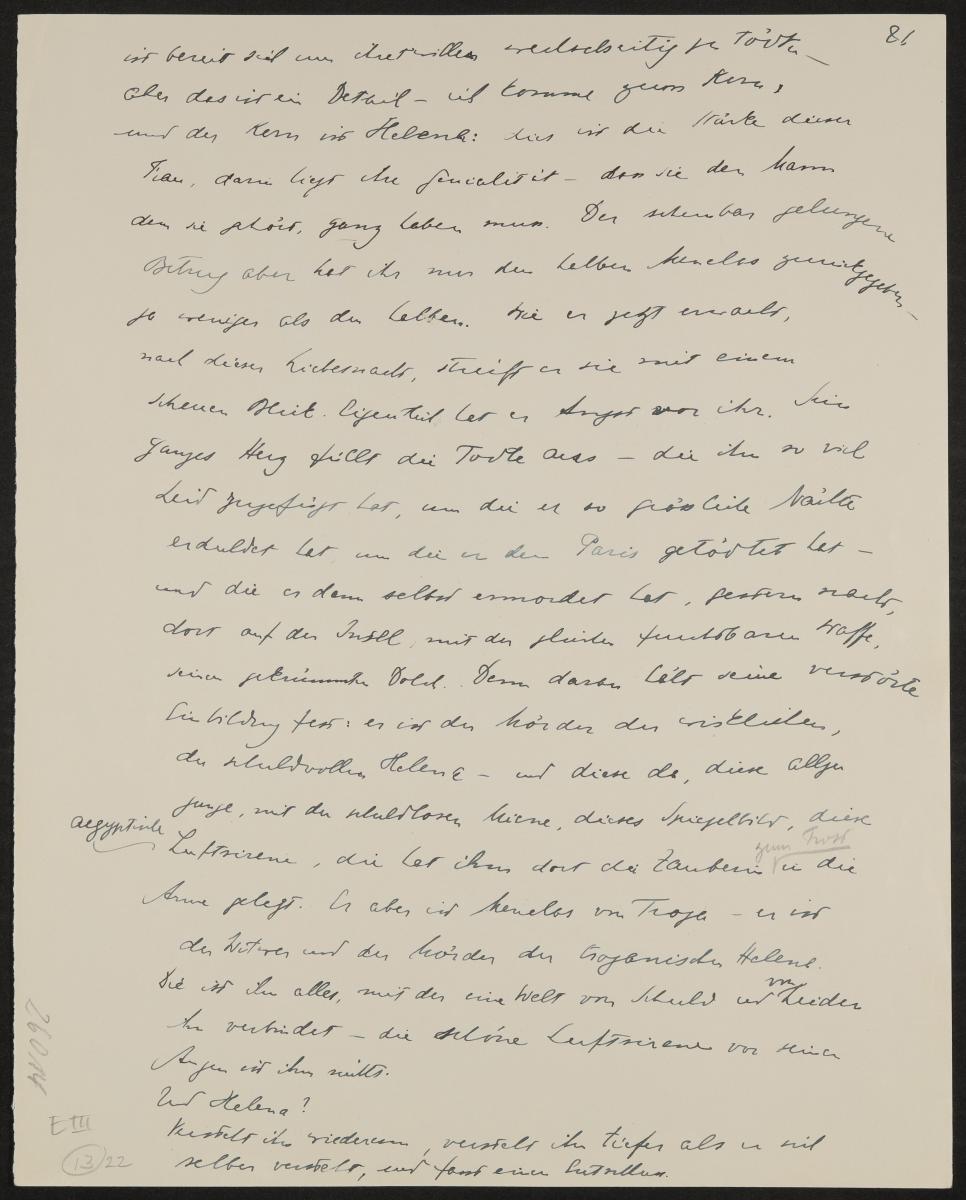 81
ist bereit sich um ihretwillen wechselseitig zu tödten –
aber das ist ein Detail – ich komme zum Kern,
und der Kern ist Helena: dies ist die Stärke dieser
Frau, darin liegt ihre Genialität – dass sie den Mann
dem sie gehört, ganz haben muss. Der scheinbar gelungene
Betrug aber hat ihr nur den halben Menelas zurückgegeben –
ja weniger als den halben. Wie er jetzt erwacht,
nach dieser Liebesnacht, streift er sie mit einem
scheuen Blick. Eigentlich hat er Angst vor ihr. Sein
ganzes Herz füllt die Todte aus – die ihm so viel
Leid zugefügt hat, um die er so grässliche Nächte
erduldet hat um die er den Paris getödtet hat –
und die er dann selbst ermordet hat, gestern nacht,
dort auf der Insel, mit der gleichen furchtbaren Waffe,
seinem gekrümmten Dolch. Denn daran hält seine verstörte
Einbildung fest: er ist der Mörder der wirklichen,
der schuldvollen Helena – und diese da, diese allzu
junge, mit der schuldlosen Miene, dieses Spiegelbild, diese
aegyptische
Luftsirene, die hat ihm dort die Zauberin zum Trost in die
Arme gelegt. Er aber ist Menelas von Troja – er ist
der Witwer und der Mörder der trojanischen Helena.
Die ist ihm alles, mit der eine Welt von Schuld und von Leiden
ihn verbindet – die schöne Luftsirene vor seinen
Augen ist ihm nichts.
Und Helena?
Versteht ihn wiederum, versteht ihn tiefer als er sich
selber versteht, und fasst einen Entschluss.
E III
13 22